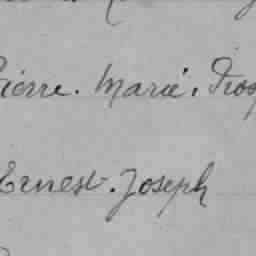 Pierre. Marie.
Ernest. Joseph